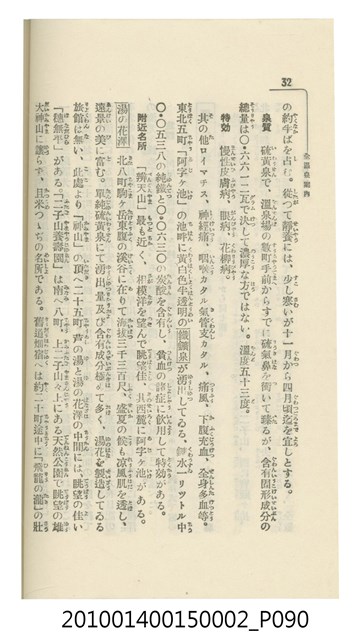 32
全國溫泉案内
の約半ばを占む。從つて靜養には、少し寒いが十一月から四月頃迄を宜しとする。
泉質 硫黃泉で、溫泉場の數町手前からすでに硫氣鼻を衝いて臻るが、含有固形成分の
總量は〇・六六一二瓦で決して濃厚な方ではない。溫度五十三度。
特効 慢性皮膚病、眼病、花柳病。
其の他ロイマチス、神經痛、咽喉カタル、氣管支カタル、痛風、下腹充血、全身多血等。
東北五町「阿字ヶ池」の池畔に黃白色半透明の鐵鑛泉が湧出してゐる、鑛水一リツトル中
〇・〇五三八の純鐵と〇・〇六三〇の炭酸を含有し、貧血の諸症に飮用して特効がある。
附近名所 「辨天山」最も近く、相模洋を望んで眺望佳、其西麓に阿字ヶ池がある。
湯の花澤 北八町駒ヶ岳東腹の溪谷に在りて海拔三千三百尺、盛夏の候も凉風肌を透し、
遠景の美に富む。單純硫黃泉にて湧出量及び含有成分極めて多く、湯花を製造してゐる
旅館は無い、此處より「神山」の頂へ二十五町、芦の湯と湯の花澤の中間には、眺望の佳い
「穗無平」がある「二子山養蠶園」は南へ八町、二子山々上にある天然公園で眺望の雄
大神山に讓らず、且米つゝぢの名所である。舊道畑宿へは約二十町途中に「飛龍の瀧」の壯
201001400150002_P090